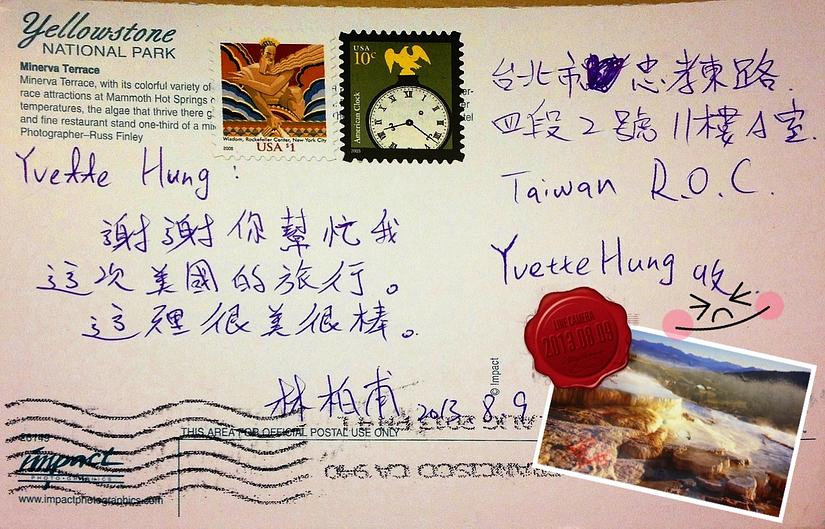 Yellowstone
NATIONAL PARK
Minerva Terrace
Minerva Terrace, with its colorful variety of
race attractions at Mammoth Hot Springs
temperatures, the algae that thrive there
and fine restaurant stand one-third of a
Photographer–Russ Finley
Wisdom, Rockefeller Center, New York City
2008
USA $1
USA
10c
American Clock
台北市忠孝東路.
四段2號11樓A室.
Taiwan R.O.C.
Yvette Hung 收
Yvette Hung :
謝謝你幫忙我
這次美國的旅行。
這裡很美很棒。
林柏甫 2013 8.9
LINE CAMERA
2013.08.09
© Impact
THIS AREA FOR OFFICIAL POSTAL USE ONLY
SAN FRANCISCO CA 940
impact
PHOTOGRAPHICS
www.impactphotographics.com